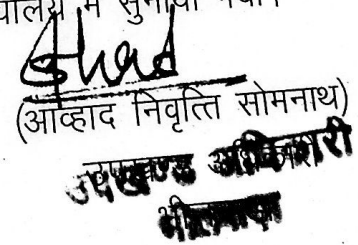 में सुनाया गया।
(आव्हाद निवृत्ति सोमनाथ)
उपखण्ड अधिकारी
भीलवाड़ा